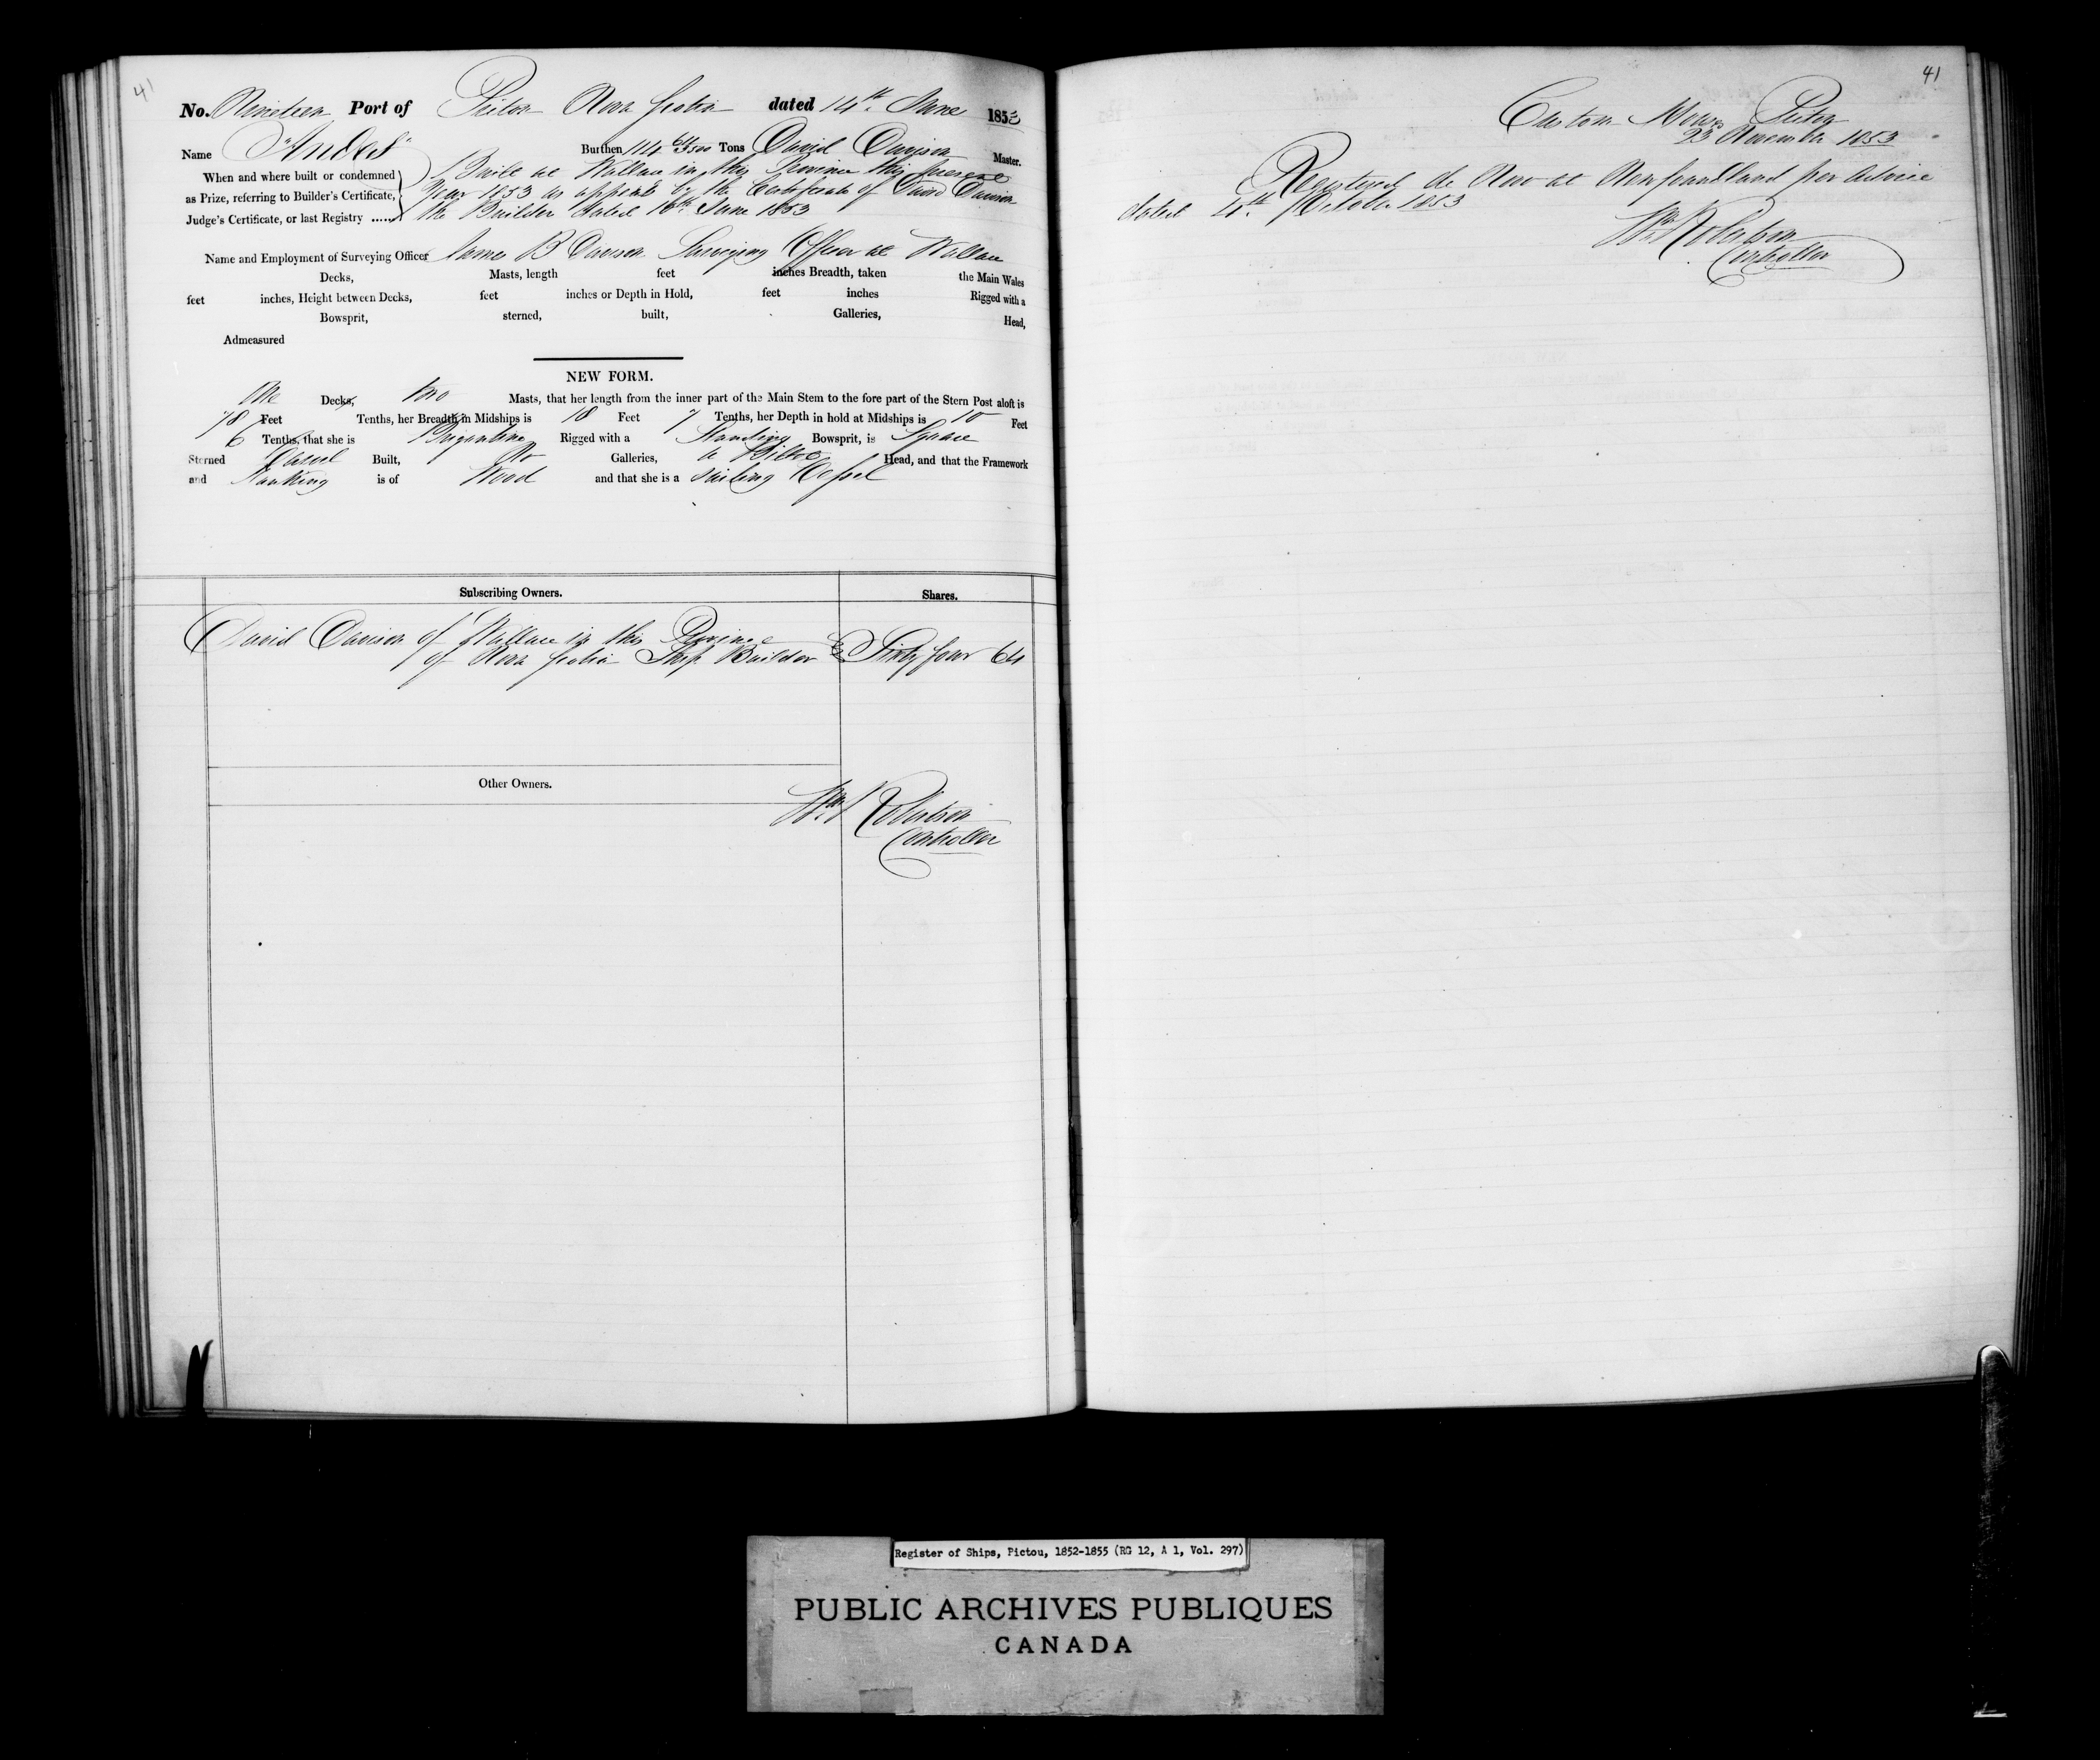 41
No. Nineteen Port of Pictou Nova Scotia dated 14th June 1853
Name "Andes" Burthen 114 Tons David Davison Master.
When and where built or condemned as Prize, referring to Builder's Certificate, Judge's Certificate, or last Registry ......
Built at Wallace in this Province this present
Year 1853 as appears by the Certificate of David Davison
the Builder dated 10th June 1853
Name and Employment of Surveying Officer James B Davison Surveying Officer at Wallace
Decks, Masts, length feet inches Breadth, taken the Main Wales
feet inches, Height between Decks, feet inches or Depth in Hold, feet inches Rigged with a
Bowsprit, sterned, built, Galleries, Head,
Admeasured
NEW FORM.
One Decks, two Masts, that her length from the inner part of the Main Stem to the fore part of the Stern Post aloft is
78 Feet Tenths, her Breadth in Midships is 18 Feet 7 Tenths, her Depth in hold at Midships is 10 Feet
6 Tenths, that she is Brigantine Rigged with a Standing Bowsprit, is Square
Sterned Carvel Built, No Galleries, a Billet Head, and that the Framework
and Planking is of Wood and that she is a Sailing Vessel
Subscribing Owners. Shares.
David Davison of Wallace in this Province
of Nova Scotia Ship Builder Sixty four 64
Other Owners.
Wm Robertson
Controller
41
Custom House Pictou
23 November 1853
Registered de Novo at Newfoundland per Advice
dated 4th October 1853
Wm Robertson
Controller
Register of Ships, Pictou, 1852-1855 (RG 12, A 1, Vol. 297)
PUBLIC ARCHIVES PUBLIQUES
CANADA